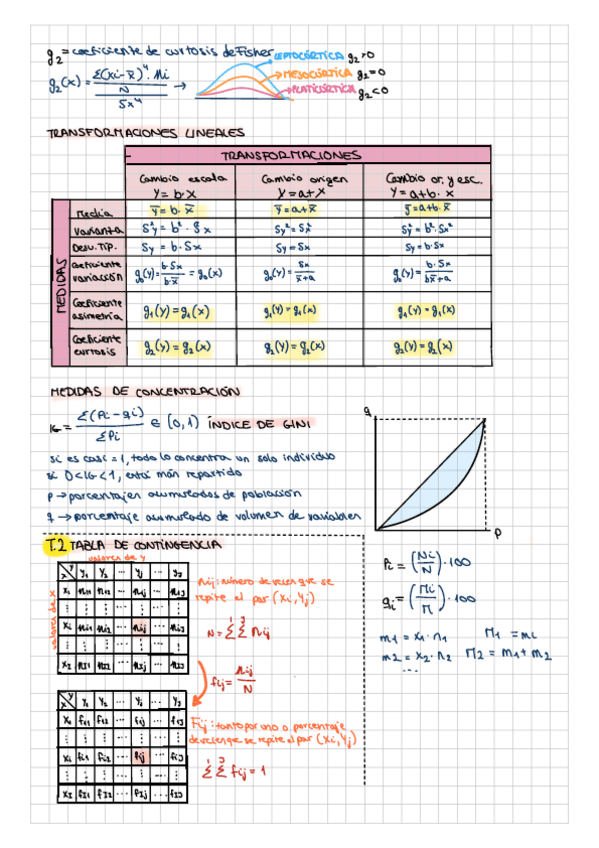 g₂ = coeficiente de curtosis de Fisher
LEPTOCÚRTICA g₂>0
MESOCÚRTICA g₂=0
PLATICÚRTICA g₂<0
g₂(x) = (Σ(xi-x̄)⁴·ni / N) / Sx⁴ →
TRANSFORMACIONES LINEALES
TRANSFORMACIONES
Cambio escala Y = b·X
Cambio origen Y = a+X
Cambio or. y esc. Y = a+b·X
MEDIDAS
Media ȳ = b·x̄ ȳ = a+x̄ ȳ = a+b·x̄
Varianza S²y = b²·Sx Sy² = Sx² Sy² = b²·Sx²
Desv. Típ. Sy = b·Sx Sy = Sx Sy = b·Sx
Coeficiente variación g₀(Y) = b·Sx / b·x̄ = g₀(x) g₀(Y) = Sx / x̄+a g₀(Y) = b·Sx / b·x̄+a
Coeficiente asimetría g₁(Y) = g₁(x) g₁(Y) = g₁(x) g₁(Y) = g₁(x)
Coeficiente curtosis g₂(Y) = g₂(x) g₂(Y) = g₂(x) g₂(Y) = g₂(x)
MEDIDAS DE CONCENTRACIÓN
IG = Σ(Pi-qi) / ΣPi ∈ [0,1) ÍNDICE DE GINI
si es casi = 1, todo lo concentra un solo individuo
si 0<IG<1, está más repartido
p → porcentajes acumulados de población
q → porcentaje acumulado de volumen de variables
q
p
Pi = (Ni/N)·100
qi = (Mi/M)·100
m1 = x1·n1 M1 = m1
m2 = x2·n2 M2 = m1+m2
...
T.2 TABLA DE CONTINGENCIA
valores de y
valores de x
X Y y1 y2 ... yj ... yJ
x1 n11 n12 ... n1j ... n1J
⋮ ⋮ ⋮ ... ⋮ ... ⋮
xi ni1 ni2 ... nij ... niJ
⋮ ⋮ ⋮ ... ⋮ ... ⋮
xI nI1 nI2 ... nIj ... nIJ
nij: número de veces que se
repite el par (xi, yj)
N = Σ Σ nij
fij = nij / N
X Y y1 y2 ... yj ... yJ
x1 f11 f12 ... f1j ... f1J
⋮ ⋮ ⋮ ... ⋮ ... ⋮
xi fi1 fi2 ... fij ... fiJ
⋮ ⋮ ⋮ ... ⋮ ... ⋮
xI fI1 fI2 ... fIj ... fIJ
Fij: tanto por uno o porcentaje
de veces que se repite el par (xi, yj)
Σ Σ fij = 1